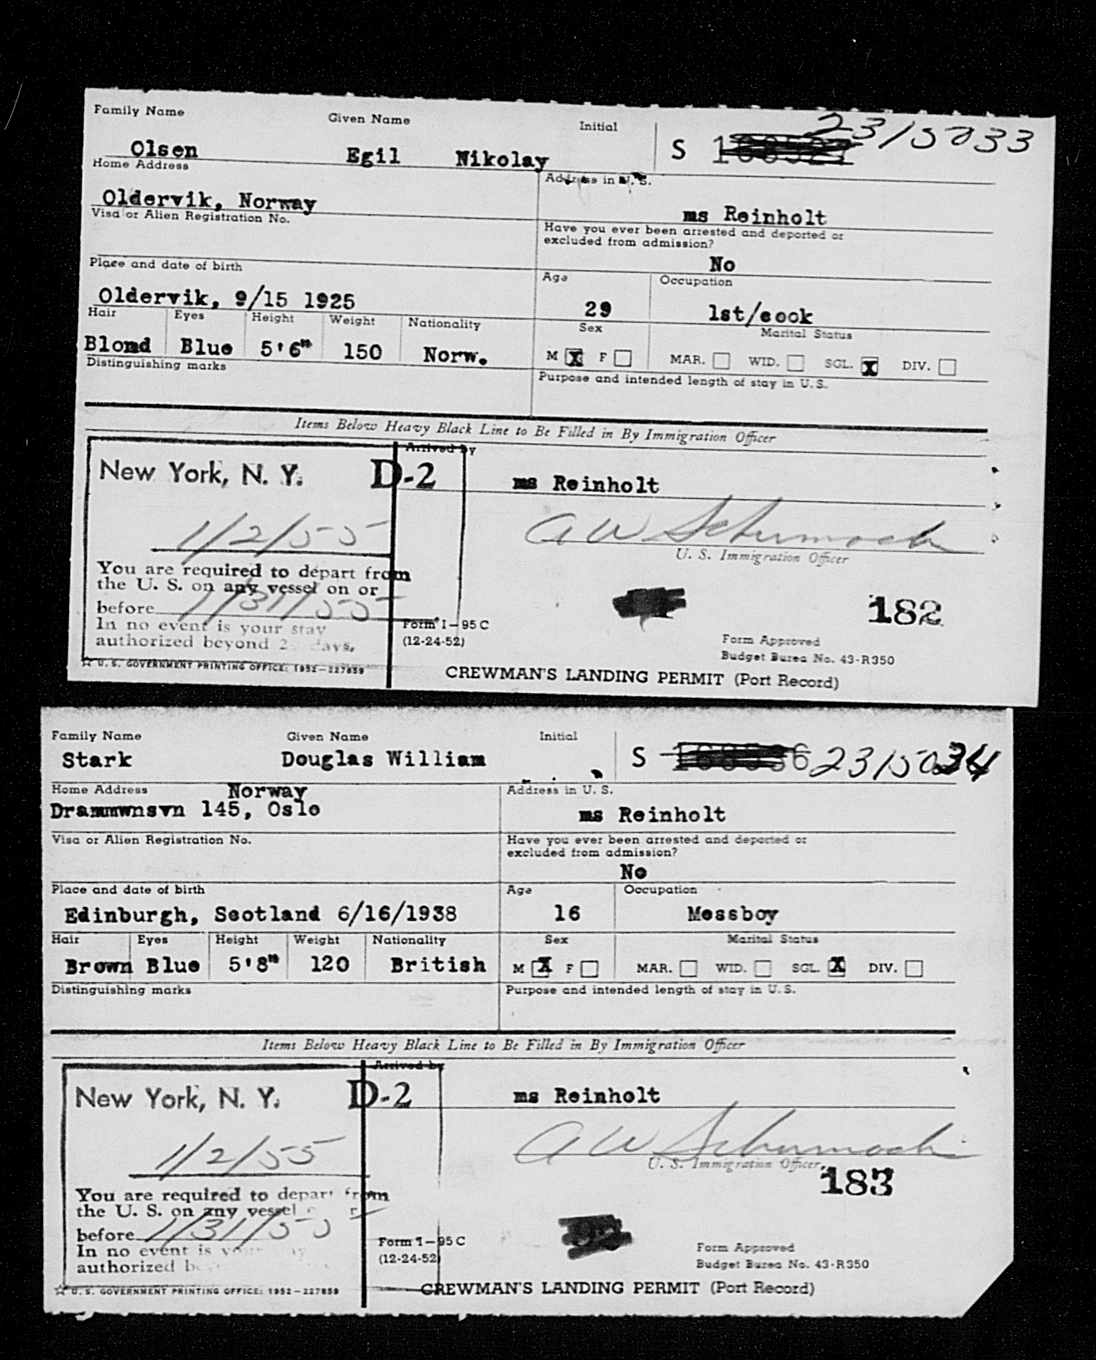 Family Name Given Name Initial
Olsen Egil Nikolay S 2315033
Home Address Address in U. S.
Oldervik, Norway ms Reinholt
Visa or Alien Registration No. Have you ever been arrested and deported or
excluded from admission?
No
Place and date of birth Age Occupation
Oldervik, 9/15 1925 29 1st/cook
Hair Eyes Height Weight Nationality Sex Marital Status
Blond Blue 5'6" 150 Norw. M X F MAR. WID. SGL. X DIV.
Distinguishing marks Purpose and intended length of stay in U. S.
Items Below Heavy Black Line to Be Filled in By Immigration Officer
Arrived by
New York, N. Y. D-2 ms Reinholt
1/2/55 A W Schumach
U. S. Immigration Officer
You are required to depart from
the U. S. on any vessel on or
before 1/31/55 182
In no event is your stay Form I-95 C Form Approved
authorized beyond 2 days. (12-24-52) Budget Bureau No. 43-R350
☆ U. S. GOVERNMENT PRINTING OFFICE: 1952-227859 CREWMAN'S LANDING PERMIT (Port Record)
Family Name Given Name Initial
Stark Douglas William S 2315034
Home Address Norway Address in U. S.
Drammwnsvn 145, Oslo ms Reinholt
Visa or Alien Registration No. Have you ever been arrested and deported or
excluded from admission?
No
Place and date of birth Age Occupation
Edinburgh, Scotland 6/16/1938 16 Messboy
Hair Eyes Height Weight Nationality Sex Marital Status
Brown Blue 5'8" 120 British M X F MAR. WID. SGL. X DIV.
Distinguishing marks Purpose and intended length of stay in U. S.
Items Below Heavy Black Line to Be Filled in By Immigration Officer
Arrived by
New York, N. Y. D-2 ms Reinholt
1/2/55 A W Schumach
U. S. Immigration Officer
183
You are required to depart from
the U. S. on any vessel
before 1/31/55
In no event is Form I-95 C Form Approved
authorized (12-24-52) Budget Bureau No. 43-R350
☆ U. S. GOVERNMENT PRINTING OFFICE: 1952-227859 CREWMAN'S LANDING PERMIT (Port Record)